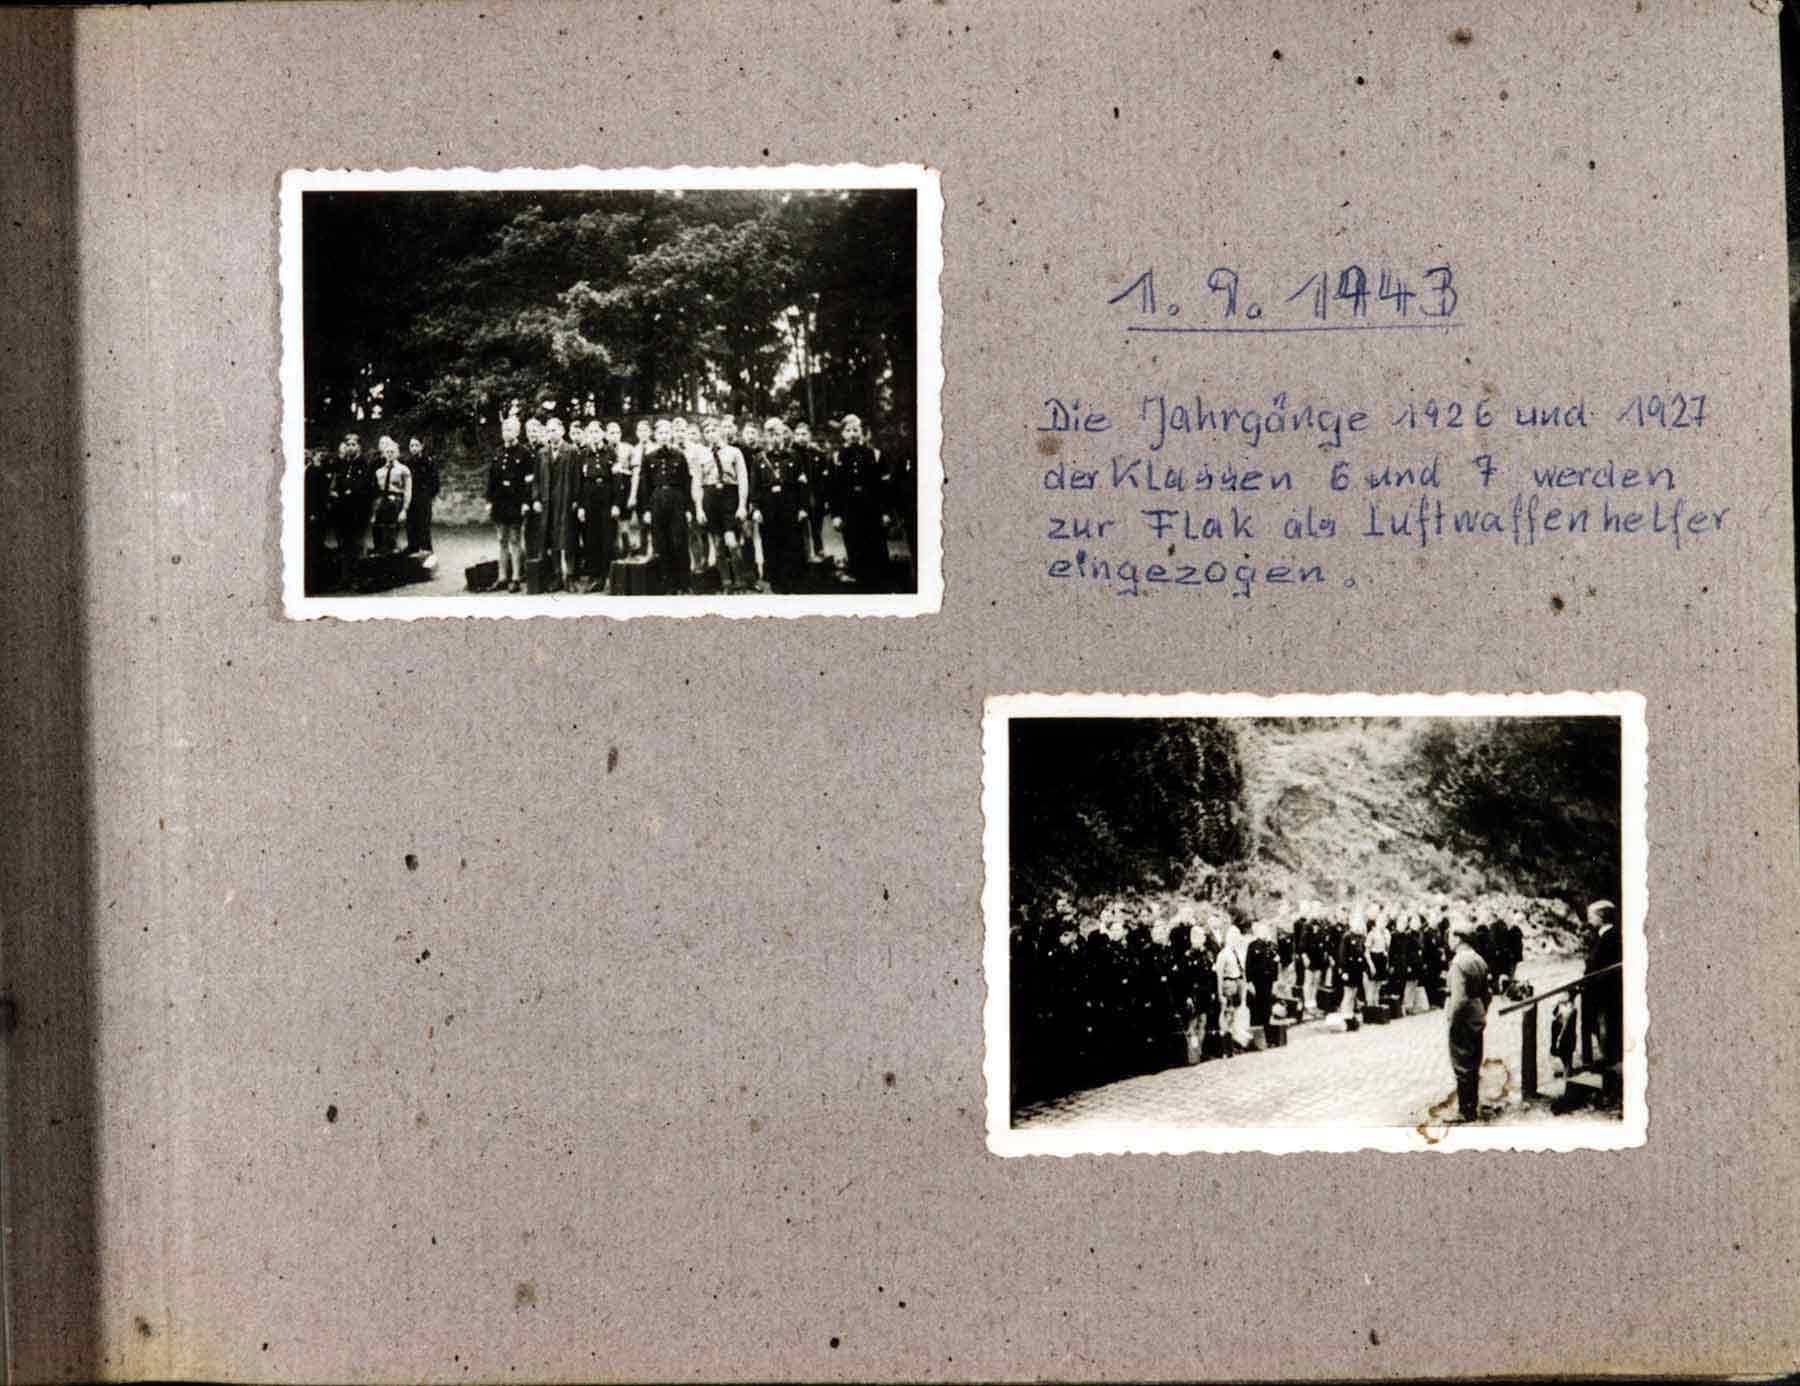 1. 9. 1943
Die Jahrgänge 1926 und 1927
der Klassen 6 und 7 werden
zur Flak als Luftwaffenhelfer
eingezogen.